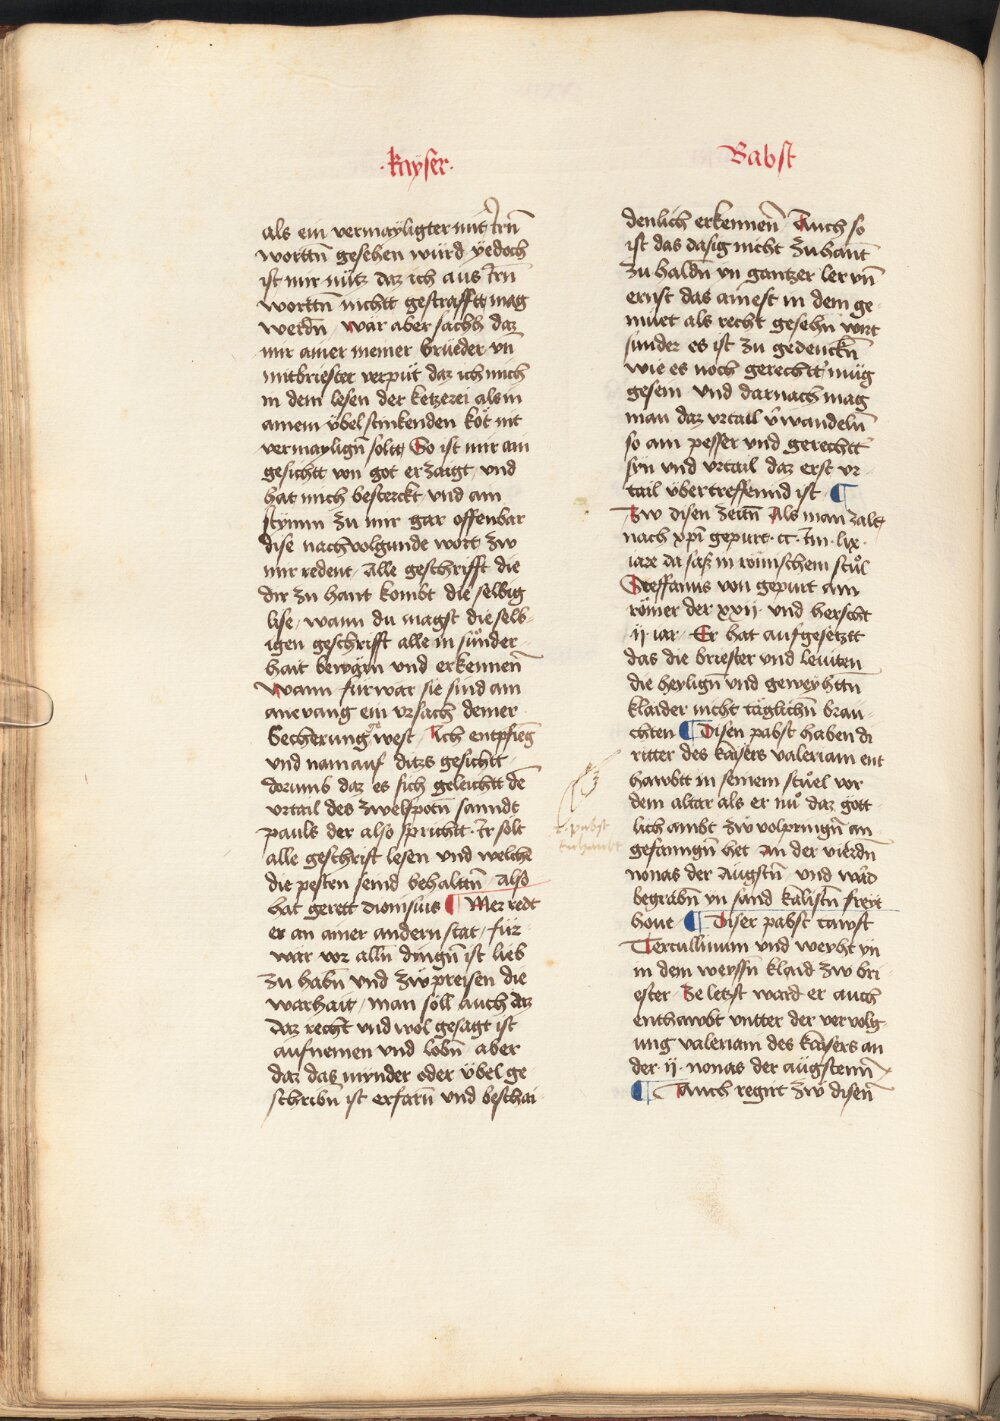 ·kayser·
als ein vermayligter mit irn̄
worttn̄ gesehen würd ÿedoch
ist mir nütz daz ich aus irn̄
worttn̄ nichtt gestrafftt mag
werdn̄ wär aber sachh daz
mir ainer meiner brueder vn̄
mitbriester verpüt daz ich mich
in dem lesen der ketzerei als in
ainem übel stinkenden kot nit
vermaylign̄ soltt So ist mir ain
gesichtt von got erzaigt und
hat mich besterckt und ain
stymm zu mir gar offenbar
dise nachvolgunde wort zw
mir redent Alle geschrifft die
dir zu hant kombt die selbig
lise wann du magst die selb
igen geschrifft alle in sunder
hait bewärn und erkennen̄
Wann fürwar sie sind am
anevang ein vrsach deiner
becherung gewest Ich entpfieng
und nam auf ditzs gesichtt
dorumb daz es sich geleichtt de̅
vrtail des zwelfpotn̄ sanndt
pauls der also sprichtt Ir sölt
alle geschrift lesen und welche
die pesten seind behalttn̄ Also
hat gerett dionisius ¶ Mer redt
er an ainer andern stat für
war vor alln̄ dingn̄ ist lieb
zu habn̄ und zw preisen die
warhait man soll auch daz
daz recht und wol gesagt ist
aufnemen und lobn̄ aber
daz das mynder oder übel ge
schribn̄ ist erfarn̄ und beschai
Babst
denlich erkennen̄ Auch so
ist das dasig nicht zu hant
zu haldn̄ vn gantzer ler vn̄
ernst das ainest in dem ge
muet als recht gesehn̄ wirt
sunder es ist zu gedenckn̄
wie es noch gerechtt müg
gesein und darnach mag
man daz vrtail v̄wandeln̄
so ain pesser und gerechtt
syn und vrtail daz erst vr
tail übertreffennd ist ¶
Zw disen zeitn̄ Als man zalt
nach xpi gepurt cc Im lix
iare da saß in römischem stuol
Steffanus von gepurt ain
römer der xxii und herscht
ii iar Er hat aufgesetztt
das die briester und leuiten
die heylign̄ und geweyhttn̄
klaider nicht täglichn̄ brau
chten ¶ Disen pabst haben di
ritter des kaysers valeriam ent
hawbtt in seinem stuel vor
dem altar als er nu daz gött
lich ambt zw volpringn̄ an
gefanngn̄ het An der vierdn̄
nonas der Augstn̄ und ward
begrabn̄ yn sand kalistn̄ freyt
houe ¶ Diser pabst tawft
Tercullinum und weyht yn
in dem weyssn̄ klaid zw bri
ester Ze letst ward er auch
enthawbt vntter der vervolg
ung valeriam des kaisers an
der ii nonas der augstenn̄
¶ Auch regirt zw disen̄